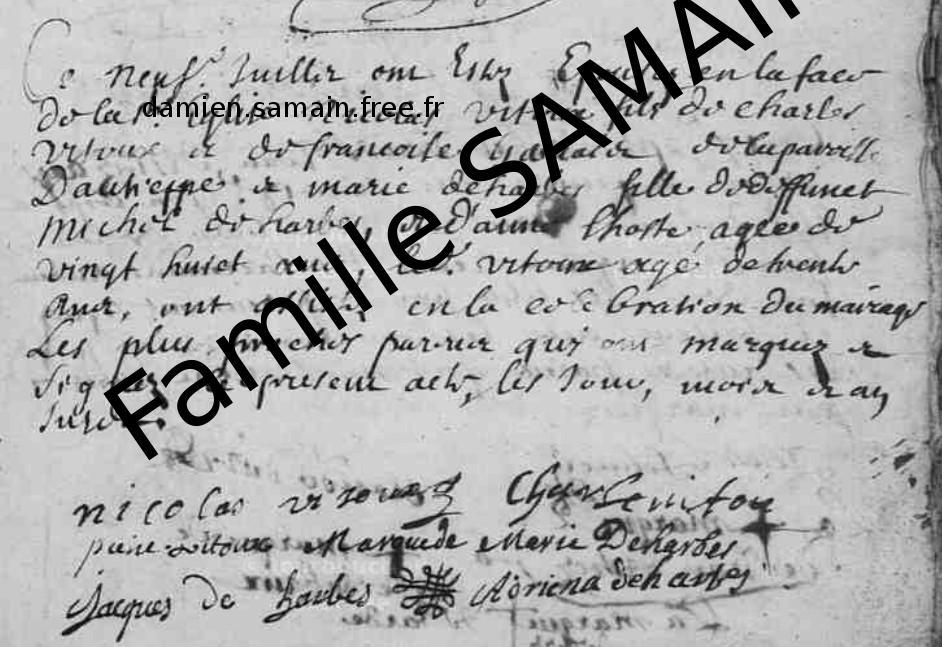 Ce neuf.e Juillez ont Estez Epousez en la face
de la s. Eglise Nicolas vitoux fils de charles
vitoux et de francoise de la paroisse
Dauchippe et marie deharbes fille de deffunct
Michel de harbes, et d'anne lhoste, agee de
vingt huict ans, led. vitoux agé de trente
ans, ont assistez en la celebration du mairage
Les plus proches parens qui ont marquez et
signez le present acte, les Jour, mois et an
susdit.
nicolas vitoux Charle vitou
piere vitoux Marque de Marie Deharbes
Jacques de harbes Adriena deharbes
damien.samain.free.fr
Famille SAMAIN